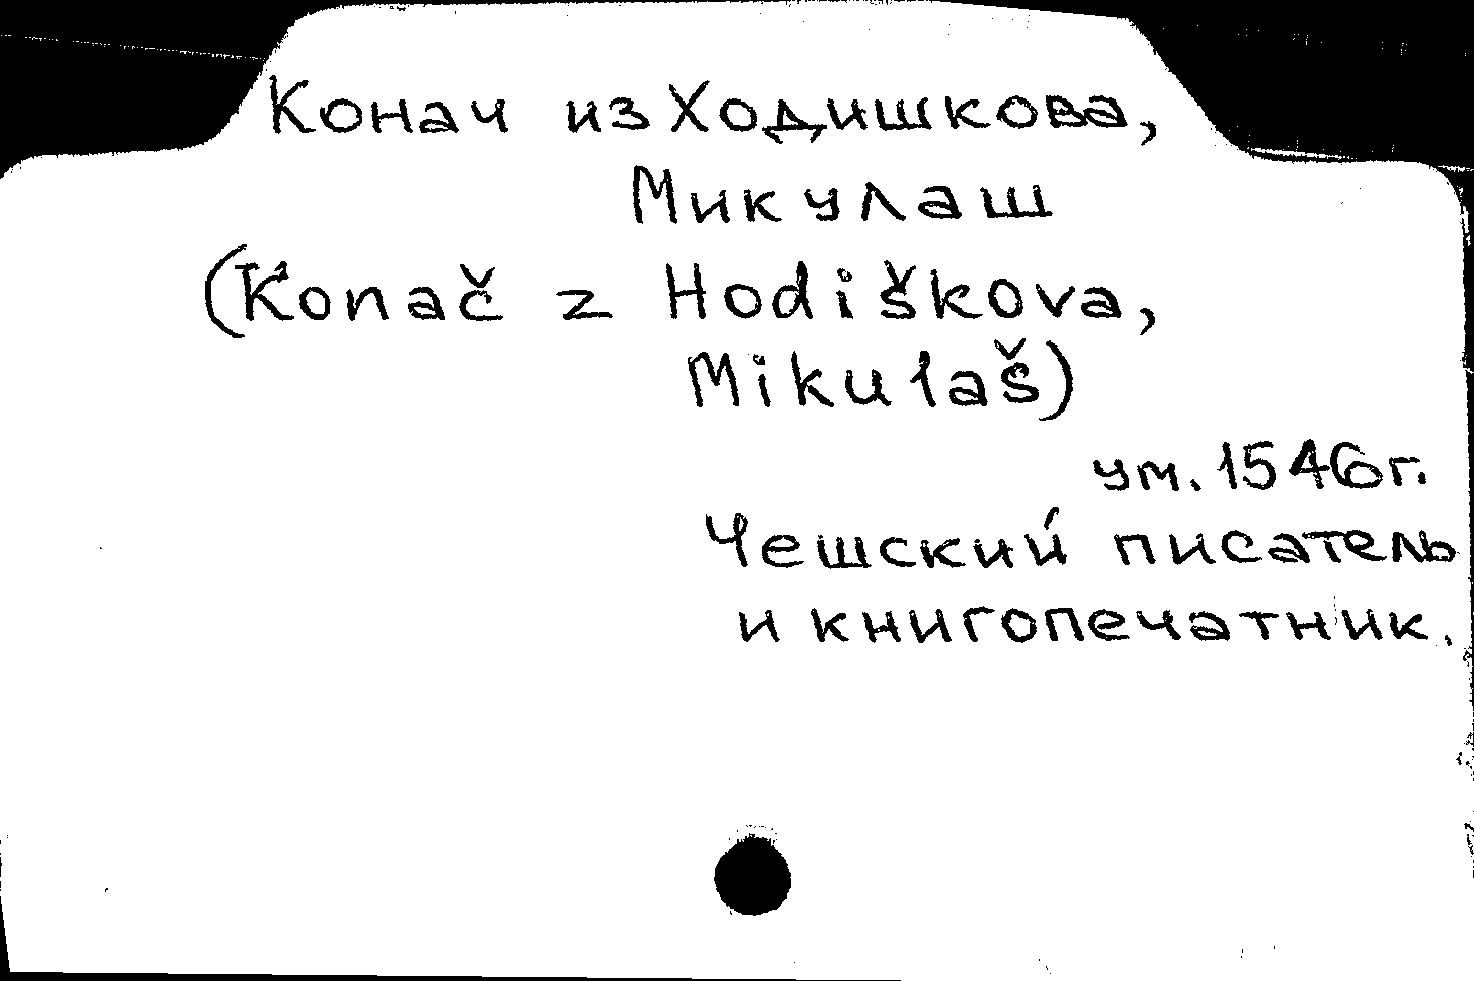 Конач из Ходишкова,
Микулаш
(Konač z Hodiškova,
Mikulaš)
ум. 1546 г.
Чешский писатель
и книгопечатник.